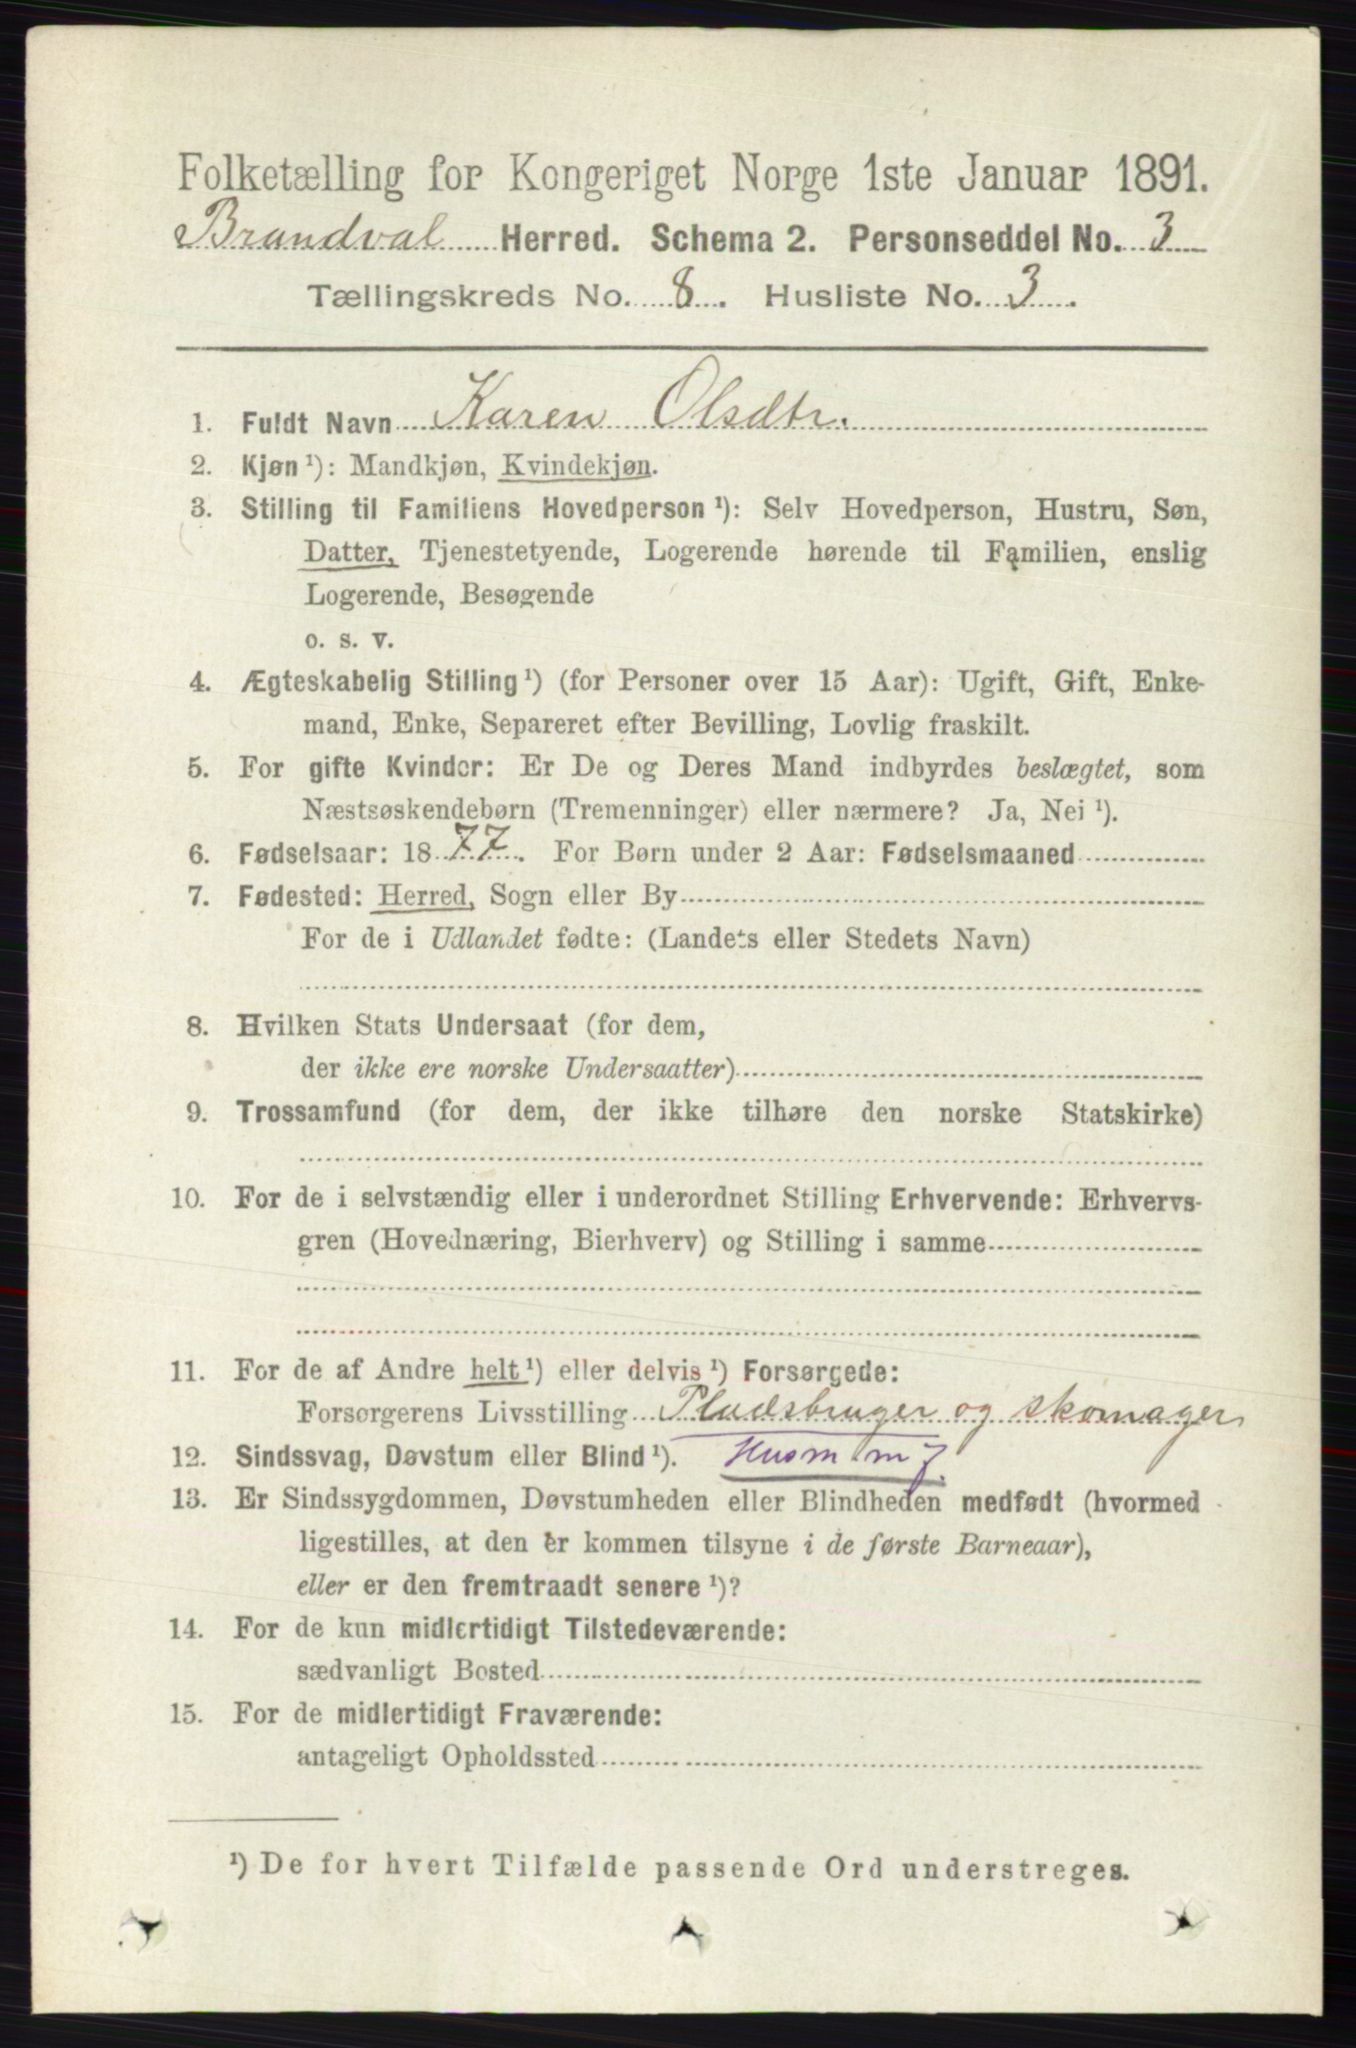 Folketælling for Kongeriget Norge 1ste Januar 1891.
Brandval Herred. Schema 2. Personseddel No. 3
Tællingskreds No. 8. Husliste No. 3.
1. Fuldt Navn Karen Olsdtr.
2. Kjøn ¹): Mandkjøn, Kvindekjøn.
3. Stilling til Familiens Hovedperson ¹): Selv Hovedperson, Hustru, Søn,
Datter, Tjenestetyende, Logerende hørende til Familien, enslig
Logerende, Besøgende
o. s. v.
4. Ægteskabelig Stilling ¹) (for Personer over 15 Aar): Ugift, Gift, Enke-
mand, Enke, Separeret efter Bevilling, Lovlig fraskilt.
5. For gifte Kvinder: Er De og Deres Mand indbyrdes beslægtet, som
Næstsøskendebørn (Tremenninger) eller nærmere? Ja, Nei ¹).
6. Fødselsaar: 1877. For Børn under 2 Aar: Fødselsmaaned
7. Fødested: Herred, Sogn eller By
For de i Udlandet fødte: (Landets eller Stedets Navn)
8. Hvilken Stats Undersaat (for dem,
der ikke ere norske Undersaatter)
9. Trossamfund (for dem, der ikke tilhøre den norske Statskirke)
10. For de i selvstændig eller i underordnet Stilling Erhvervende: Erhvervs-
gren (Hovednæring, Bierhverv) og Stilling i samme
11. For de af Andre helt ¹) eller delvis ¹) Forsørgede:
Forsørgerens Livsstilling Pladsbruger og skomager
12. Sindssvag, Døvstum eller Blind ¹). Husm m j.
13. Er Sindssygdommen, Døvstumheden eller Blindheden medfødt (hvormed
ligestilles, at den er kommen tilsyne i de første Barneaar),
eller er den fremtraadt senere ¹)?
14. For de kun midlertidigt Tilstedeværende:
sædvanligt Bosted
15. For de midlertidigt Fraværende:
antageligt Opholdssted
¹) De for hvert Tilfælde passende Ord understreges.